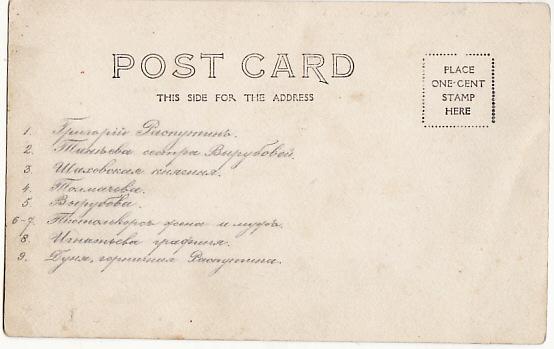 POST CARD
THIS SIDE FOR THE ADDRESS
PLACE
ONE-CENT
STAMP
HERE
1. Григорій Распутинъ.
2. Танѣева сестра Вырубовой.
3. Шаховская княгиня.
4. Толмачева.
5. Вырубова.
6-7. жена и мужъ.
8. Игнатьева графиня.
9. Дуня, горничная Распутина.